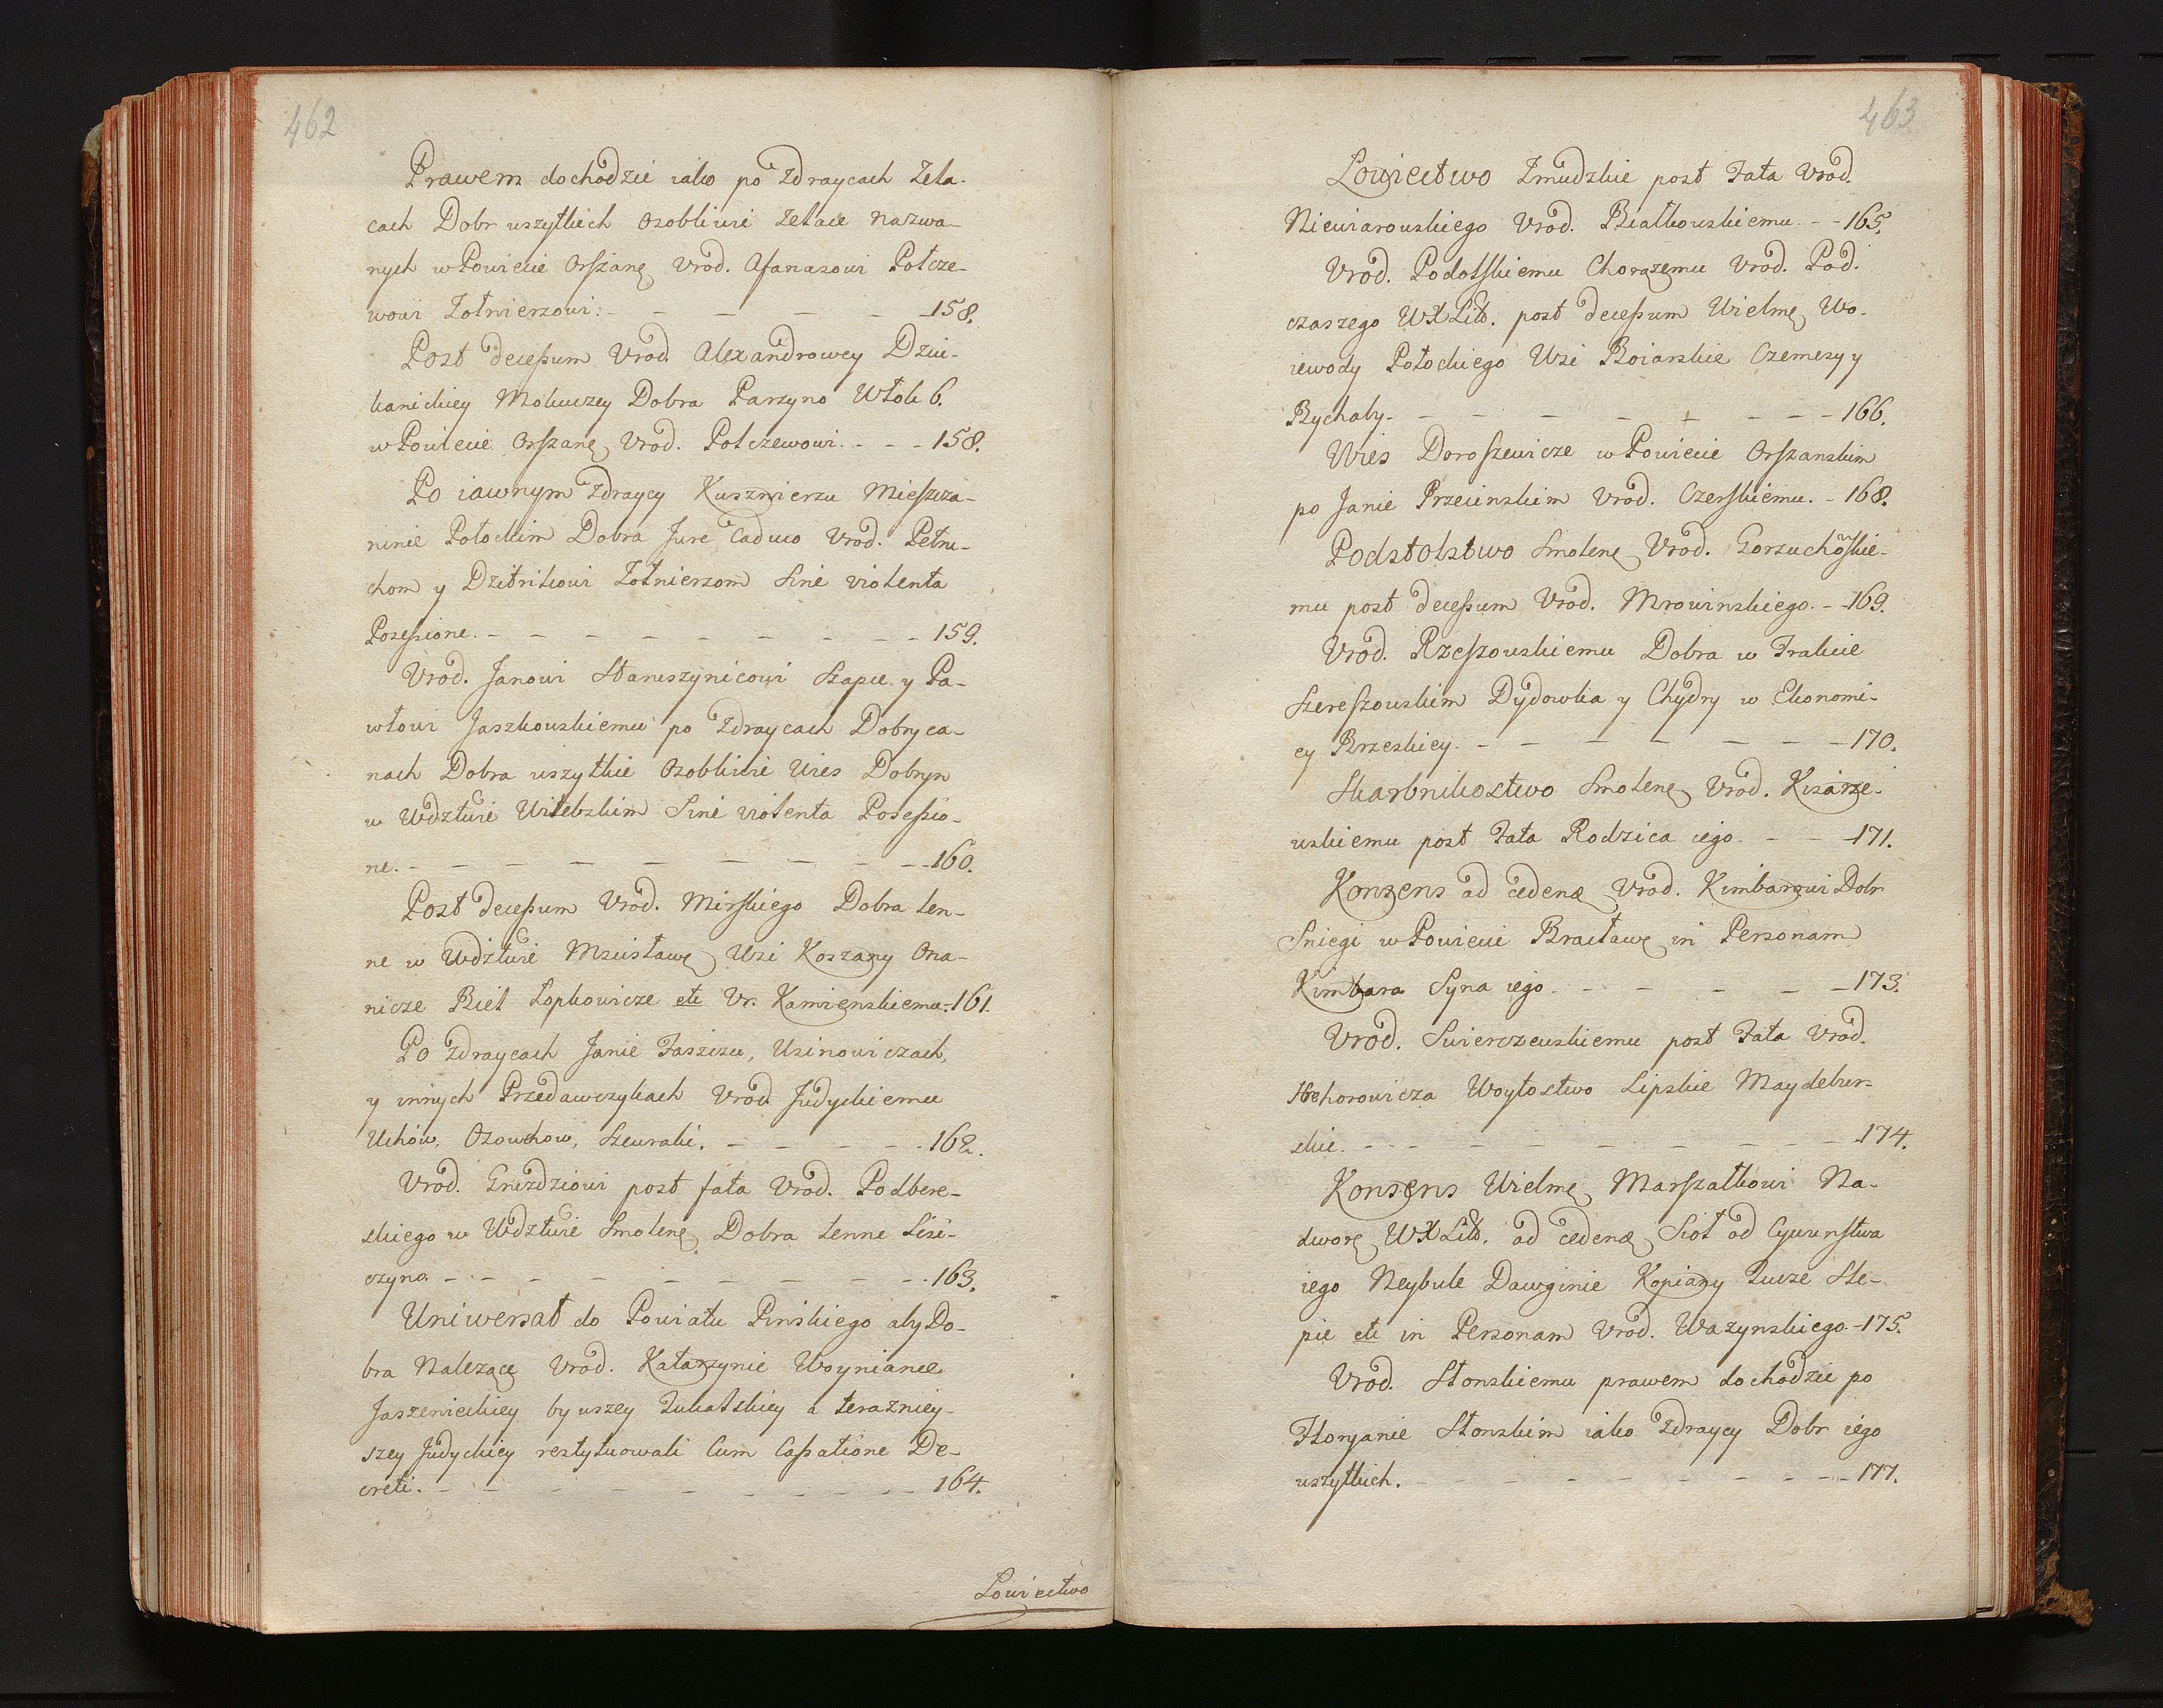 462
Prawem dochodzic iako po Zdraycach Zela-
cach Dobr wszytkich osobliwie Zelace nazwa-
nych w Powiecie Orszanę Vrod. Afanasowi Polcze-
wowi Zołnierzowi. - - - - - 158.
Post decessum Vrod. Alexandrowey Dzie-
kanickiey Mokuczey Dobra Parzyno Włok 6.
w Powiecie Orszanę Vrod. Polczewowi. - - - 158.
Po iawnym Zdraycy Kusznierzu Mieszcza-
ninie Połockim Dobra Jure Caduco Vrod. Petru-
chom y Dzitrikowi Zołnierzom Sine violenta
Posessione. - - - - - - - - - 159.
Vrod. Janowi Staniszynicowi Szapce y Pa-
włowi Jaszkowskiemu po Zdraycach Dobryca-
nach Dobra wszytkie osobliwie Wies Dobryn
w Wdztwie Witebskim Sine violenta Posessio-
ne. - - - - - - - - - 160.
Post decessum Vrod. Mirskiego Dobra len-
ne w Wdztwie Mscisławę Wsi Koszany Ona-
nicze Biel Łopkowicze etc Vr. Kamienskiemu. - 161.
Po Zdraycach Janie Faszczu, Usinowiczach,
y innych Przedawczykach Vrod Judyckiemu
Uchow, Ozowchow, Szewraki. - - - - - 162.
Vrod. Gnizdziowi post fata Vrod. Podbere-
skiego w Wdztwie Smolenę Dobra lenne Lisi-
czyno. - - - - - - - - - 163.
Uniwersał do Powiatu Pinskiego aby Do-
bra Nalezące Vrod. Katarzynie Woyniance
Jaszenieckiey bywszey Zukatskiey a terazniey-
szey Judyckiey restytuowali Cum Cassatione De-
creti. - - - - - - - - - 164.
Łowiectwo
463
Łowiectwo Zmudzkie post Fata Vrod.
Niewiarowskiego Vrod. Białkowskiemu. - - 165.
Vrod. Podolskiemu Chorązemu Vrod. Pod-
czaszego WXLitt. post decessum Wielmę Wo-
iewody Połockiego Wsi Boiarskie Czemesy y
Bychały. - - - - - - - - 166.
Wies Doroszewicze w Powiecie Orszanskim
po Janie Przecinskim Vrod. Czerskiemu. - 168.
Podstolstwo Smolenę Vrod. Gorzuchowskie-
mu post decessum Vrod. Mrowinskiego. - - 169.
Vrod. Rzeszowskiemu Dobra w Trakcie
Szereszowskim Dydowka y Chydry w Ekonomi-
ey Brzeskiey. - - - - - - - 170.
Skarbnikostwo Smolenę Vrod. Kisarze-
wskiemu post Fata Rodzica iego. - - - 171.
Konsens ad cedenę Vrod. Kimbarowi Dobr
Sniegi w Powiecie Bracławę in Personam
Kimbara Syna iego. - - - - - - 173.
Vrod. Swierczewskiemu post Fata Vrod.
Hrehorowicza Woytostwo Lipskie Maydebur-
skie. - - - - - - - - - 174.
Konsens Wielmę Marszałkowi Na-
dworę WXLitt. ad cedenę Sioł od Cywunstwa
iego Neybule Dawginie Kopiany Łucze Ste-
pie etc in Personam Vrod. Wazynskiego. - 175.
Vrod. Stonskiemu prawem dochodzic po
Floryanie Stonskim iako Zdraycy Dobr iego
wszytkich. - - - - - - - - 177.